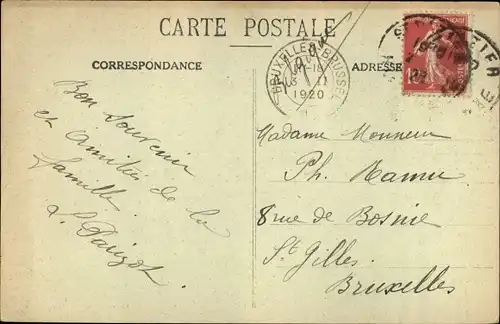 CARTE POSTALE
CORRESPONDANCE
ADRESSE
BRUXELLES BRUSSEL
1920
Bon souvenir
et amitiés de la
famille
Madame Monsieur
Ph. Namur
8 rue de Bosnie
St Gilles
Bruxelles